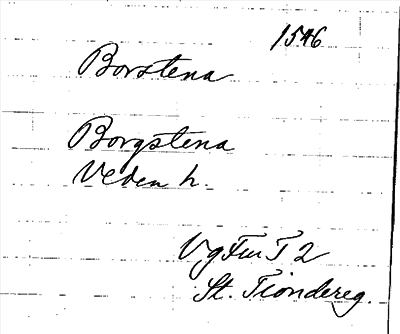 1546
Borstena
Borgstena
Veden h.
Vg Fur T 2
St. Tiondereg.